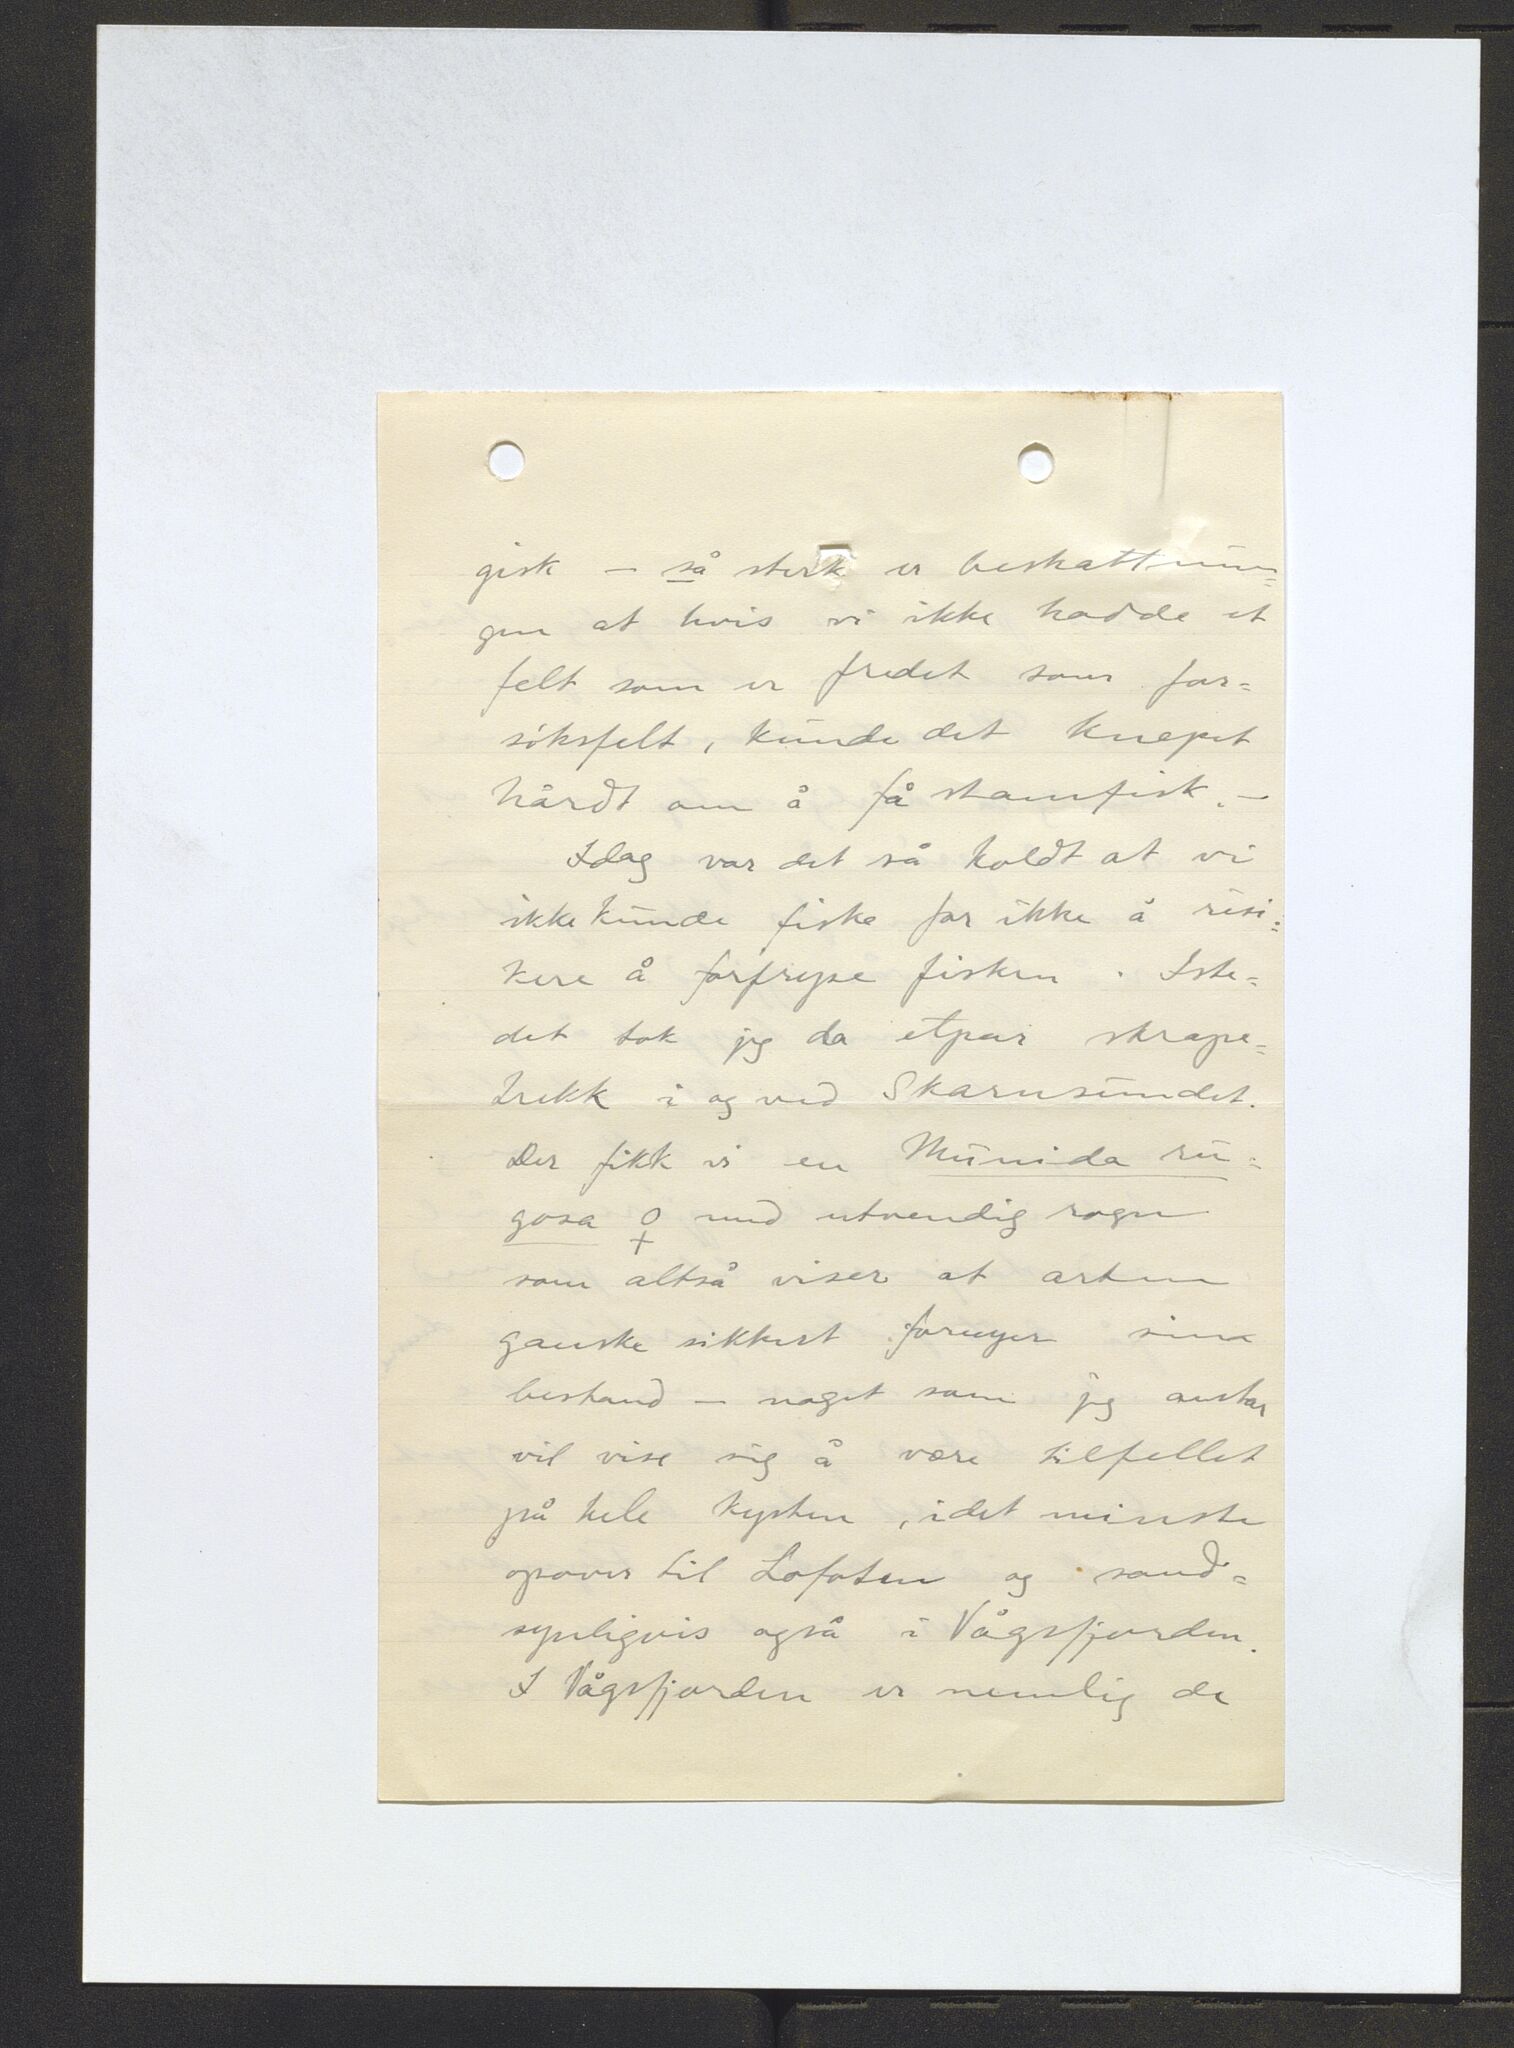 gisk – så sterk er beskattnin-
gen at hvis vi ikke hadde et
felt som er fredet som for=
söksfelt, kunde det knepet
hårdt om å få stamfisk. –
Idag var det så koldt at vi
ikke kunde fiske for ikke å risi=
kere å forfryse fisken. Iste=
det tok jeg da etpar skrape=
trekk i og ved Skarnsundet.
Der fikk vi en Munida ru=
gosa ♀ med utvendig rogn
som altså viser at arten
ganske sikkert fornyer sin
bestand – noget som jeg antar
vil vise sig å være tilfellet
på hele kysten, idet minste
opover til Lofoten og sand=
synligvis også i Vågsfjorden.
I Vågsfjorden er nemlig de